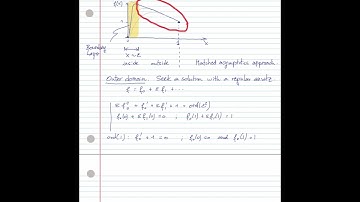 f(x)
1
0
1
x
Boundary
layer
x ~ ε
inside outside Matched asymptotics approach
Outer domain. Seek a solution with a regular ansatz
f = f₀ + ε f₁ + ...
ε f₀'' + f₀' + ε f₁' + 1 = ord(ε²)
f₀(0) + ε f₁(0) = 0 ; f₀(1) + ε f₁(1) = 1
ord(1): f₀' + 1 = 0 ; f₀(0) = 0 and f₀(1) = 1